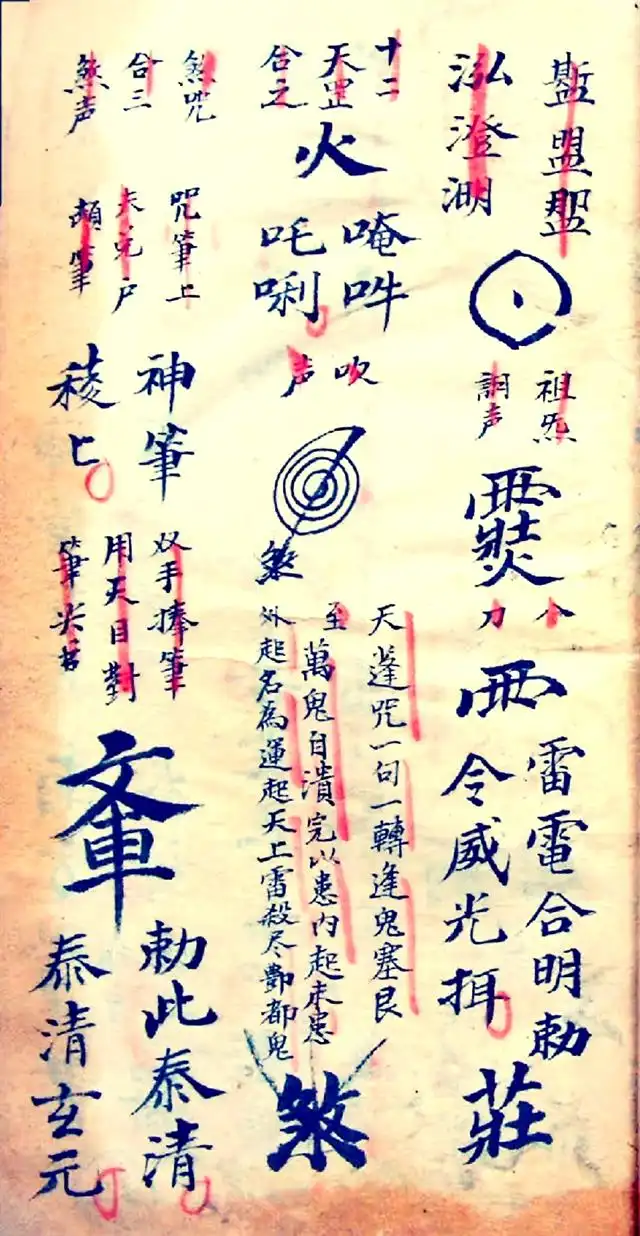 泓澄湖
祖炁
調声
人
刀
雷電合明勅
令威光揖
莊
十二
天罡
合之
火
唵吽
吒唎
吹
声
煞
天蓬咒一句一轉逢鬼塞艮
至萬鬼自潰完以患內起末患
外起名為運起天上雷殺尽酆都鬼
煞
煞咒
合三
煞声
咒筆上
神筆
双手捧筆
用天目對
筆尖書
勅此泰清
泰清玄元